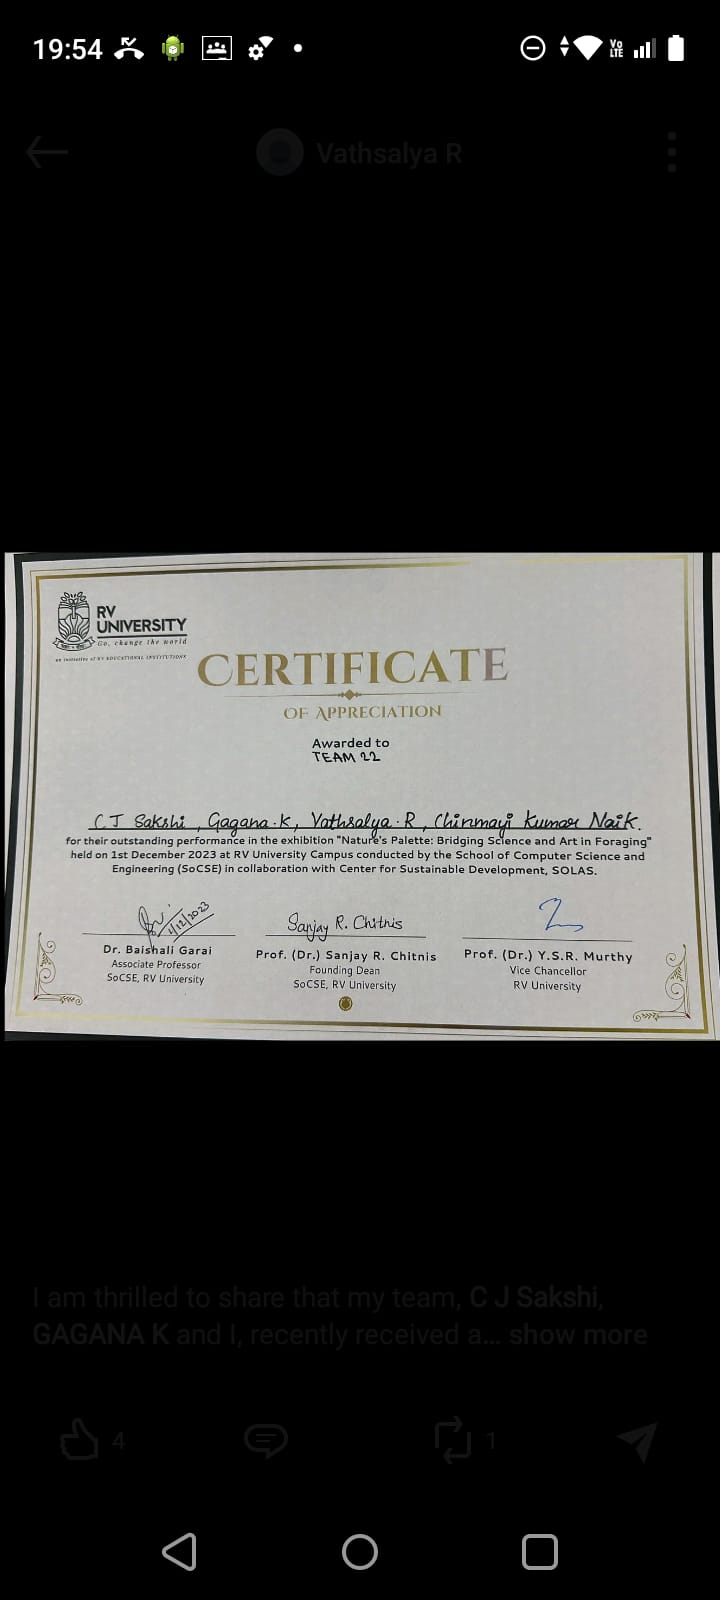 19:54
Vo
LTE
Vathsalya R
RV
UNIVERSITY
Go, change the world
an initiative of RV EDUCATIONAL INSTITUTIONS
CERTIFICATE
OF APPRECIATION
Awarded to
TEAM 22
C J Sakshi, Gagana.K, Vathsalya.R, Chinmayi Kumar Naik.
for their outstanding performance in the exhibition "Nature's Palette: Bridging Science and Art in Foraging"
held on 1st December 2023 at RV University Campus conducted by the School of Computer Science and
Engineering (SoCSE) in collaboration with Center for Sustainable Development, SOLAS.
1/12/2023
Sanjay R. Chitnis
Dr. Baishali Garai
Associate Professor
SoCSE, RV University
Prof. (Dr.) Sanjay R. Chitnis
Founding Dean
SoCSE, RV University
Prof. (Dr.) Y.S.R. Murthy
Vice Chancellor
RV University
I am thrilled to share that my team, C J Sakshi,
GAGANA K and I, recently received a... show more
4
1